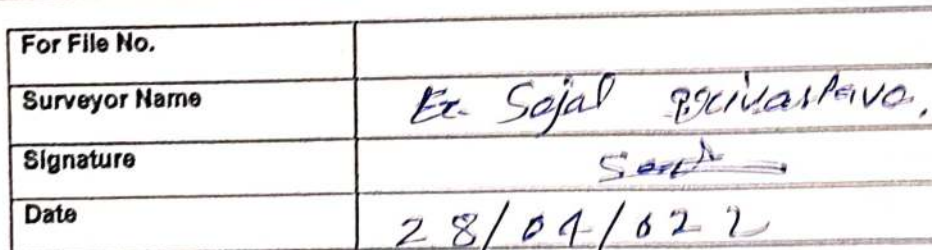 For File No.
Surveyor Name Er. Sajal Srivastava,
Signature
Date 28/04/022